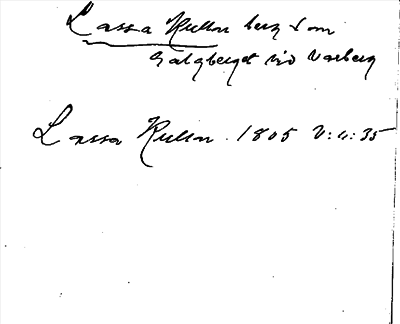 Lassa Kullar berg S om
Galgberget vid Varberg
Lassa Kullar. 1805 V:4:35